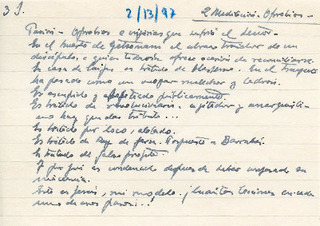 3 J.
2/13/97
2 Meditación. Oprobios -
Pasión - Oprobios e injurias que sufrió el Señor.
En el huerto de Getsemaní el abrazo traidor de un
discípulo, a quien todavía ofrece ocasión de reconciliarse.
En casa de Caifás es tratado de blasfemo. En el
ha pasado como un vulgar malhechor y ladrón.
Es escupido y abofeteado públicamente.
Es tratado de revolucionario, agitador y
no hay que dar tributo...
Es tratado por loco, alocado.
Es tratado de Rey de farsa. Pospuesto a Barrabás.
Es tratado de falso profeta.
Y por fin es condenado después de haber
inocencia.
Este es Jesús, mi modelo. ¡Cuántas lecciones en cada
uno de esos pasos!...!